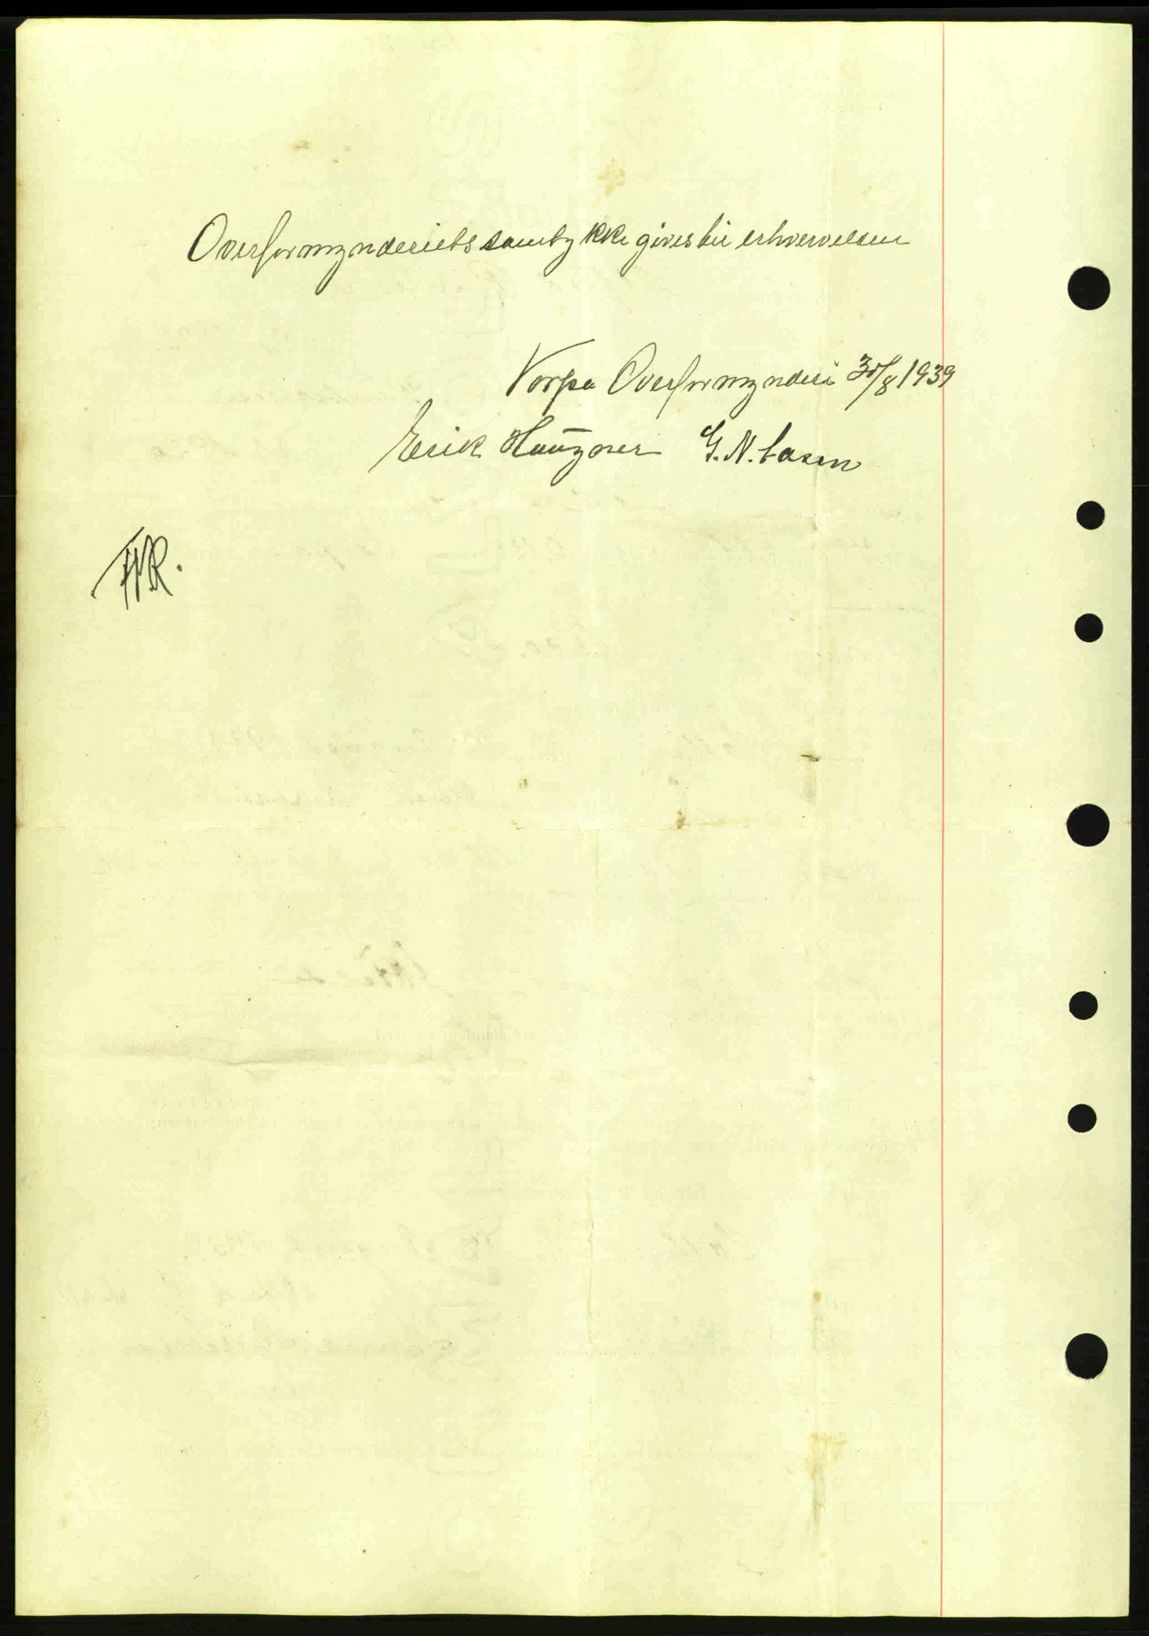 Overformynderiets samtykke gives til erhvervelsen
Vorpa Overformynderi 30/8 1939
Erik Haugner G. N. Lasen